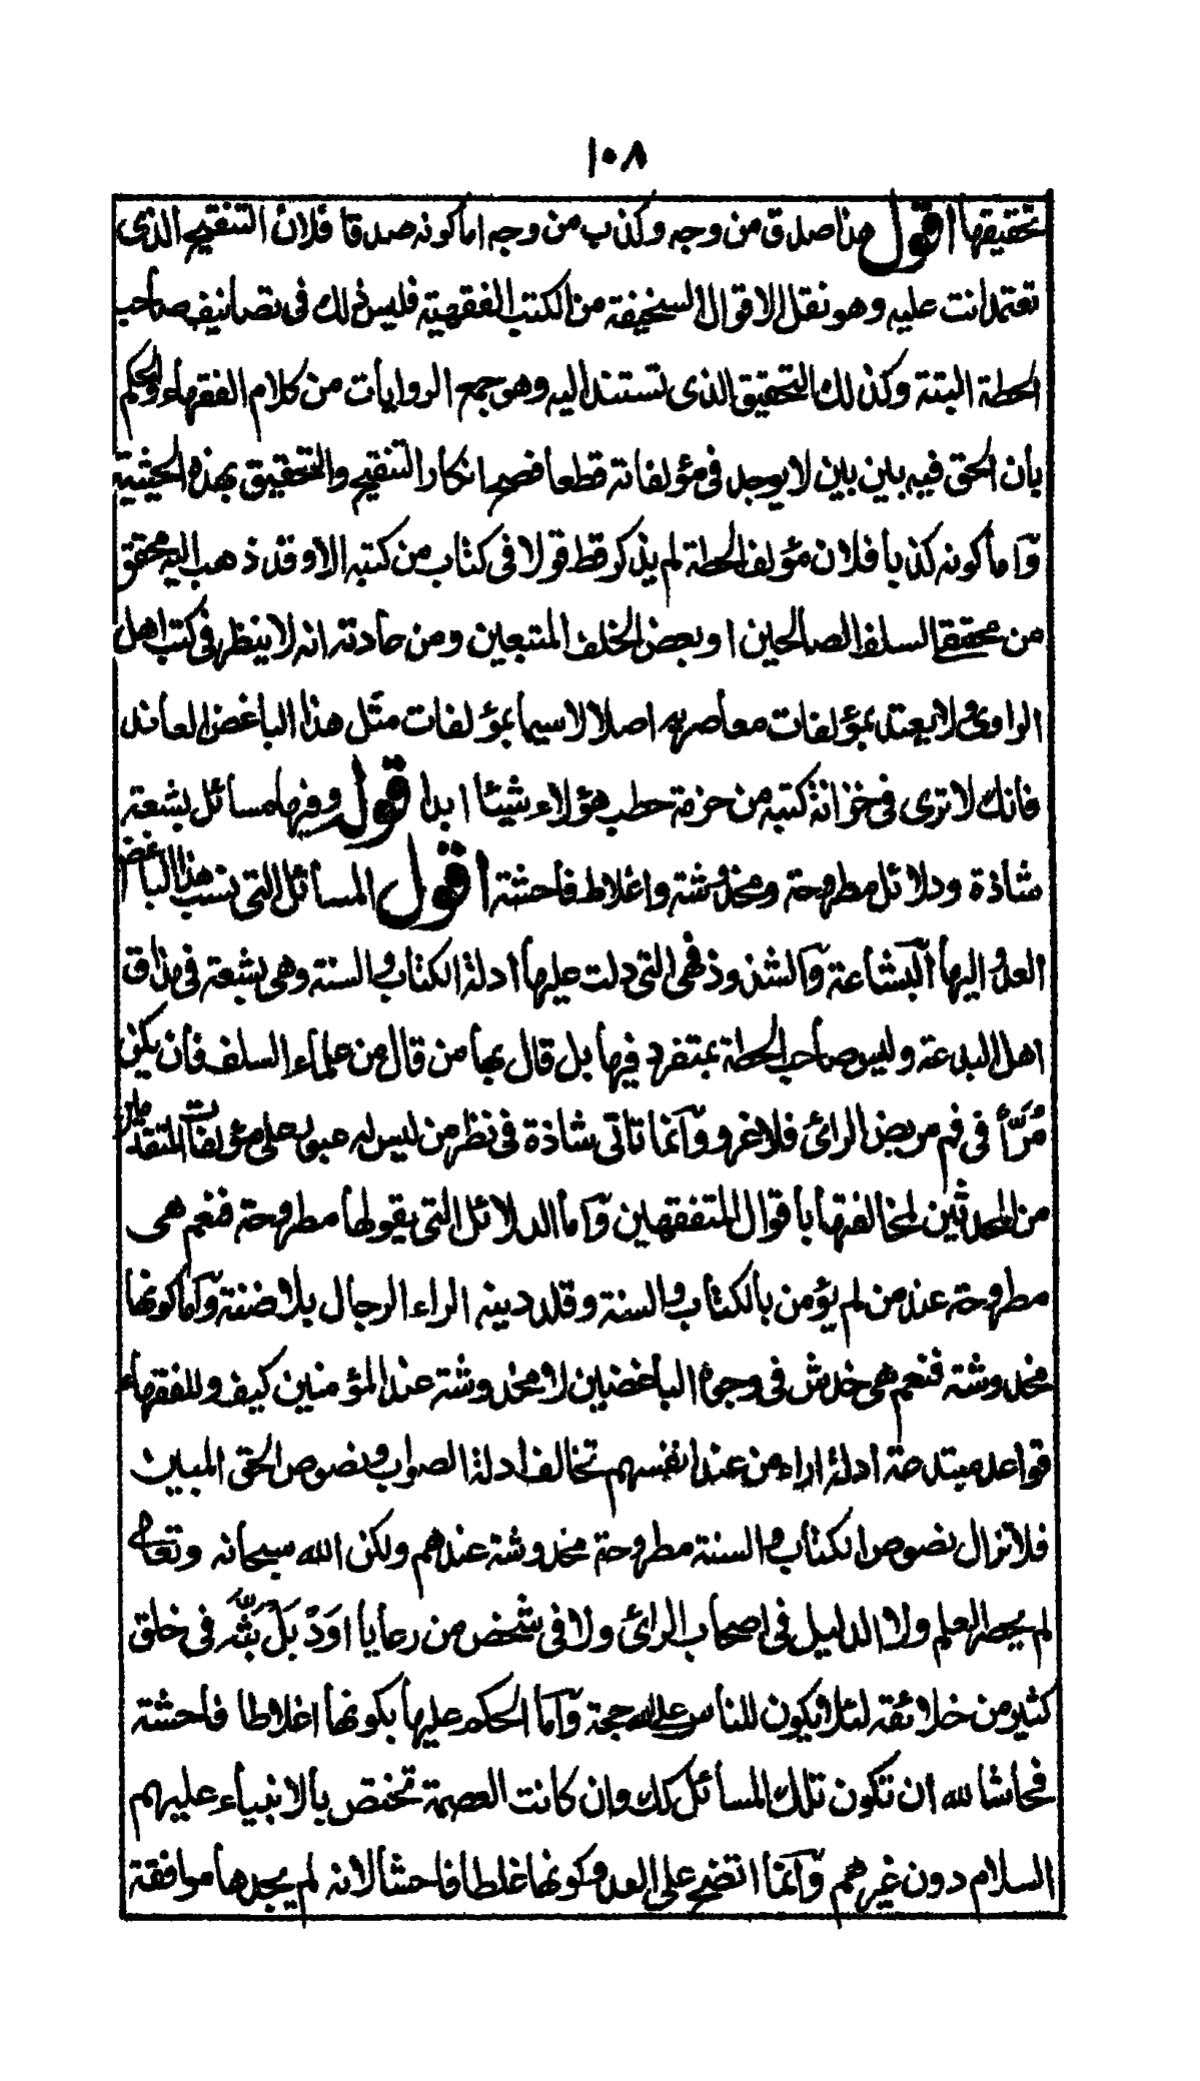 ١٠٨
تحقيقها اقول هذا صدق من وجه وكذب من وجه اما كونه صدقا فلان التنقيح الذى
تعتمد انت عليه وهو نقل الاقوال السخيفة من الكتب الفقهية فليس ذلك فى تصانيف صاحب
الحطة البتة وكذلك التحقيق الذى تستند اليه وهو جمع الروايات من كلام الفقهاء والحكم
بان الحق فيه بين بين لا يوجد فى مؤلفاته قطعا فصح انكار التنقيح والتحقيق بهذه الحيثية
وآما كونه كذبا فلان مؤلف الحطة لم يذكر قط قولا فى كتاب من كتبه الا وقد ذهب اليه محقق
من محققى السلف الصالحين او بعض الخلف المتبعين ومن عادته انه لا ينظر فى كتب اهل
الراى ولا يعتد بمؤلفات معاصريه اصلا لا سيما بمؤلفات مثل هذا الباغض المعاند
فانك لا ترى فى خزانة كتبه من حزمة حطب هؤلاء شيئا ابدا قول وفيها مسائل بشعة
شاذة ودلائل مطروحة ومخدوشة واغلاط فاحشة اقول المسائل التى ينسب هذا الباغض
العدو اليها البشاعة والشذوذ فهى التى دلت عليها ادلة الكتاب والسنة وهى بشعة فى مذاق
اهل البدعة وليس صاحب الحطة بمتفرد فيها بل قال بها من قال من علماء السلف فان يكن
مُرّاً فى فم مريض الرائ فلا غرو وآنما تاتى شاذة فى نظر من ليس له عبور على مؤلفات المتقدمين
من المحدثين لمخالفتها باقوال المتفقهين وآما الدلائل التى يقولها مطروحة فنعم هى
مطروحة عند من لم يؤمن بالكتاب والسنة وقلد دينه الراء الرجال بلا ضنة وآما كونها
مخدوشة فنعم هى خدش فى وجوه الباغضين لا مخدوشة عند المؤمنين كيف وللفقهاء
قواعد مبتدعة ادلة اراء من عند انفسهم تخالف ادلة الصواب ونصوص الحق المبين
فلا تزال نصوص الكتاب والسنة مطروحة مخدوشة عندهم ولكن الله سبحانه وتعالى
لم يحصر العلم ولا الدليل فى اصحاب الرائ ولا فى شخص من رعايا اَوَدْ بَلْ بَثَّه فى خلق
كثير من خلائقه لئلا يكون للناس على الله حجة وآما الحكم عليها بكونها اغلاطا فاحشة
فحاشا لله ان تكون تلك المسائل كك وان كانت العصمة تختص بالانبياء عليهم
السلام دون غيرهم وآنما اتضح على العدو كونها غلطا فاحشا لانه لم يجدها موافقة